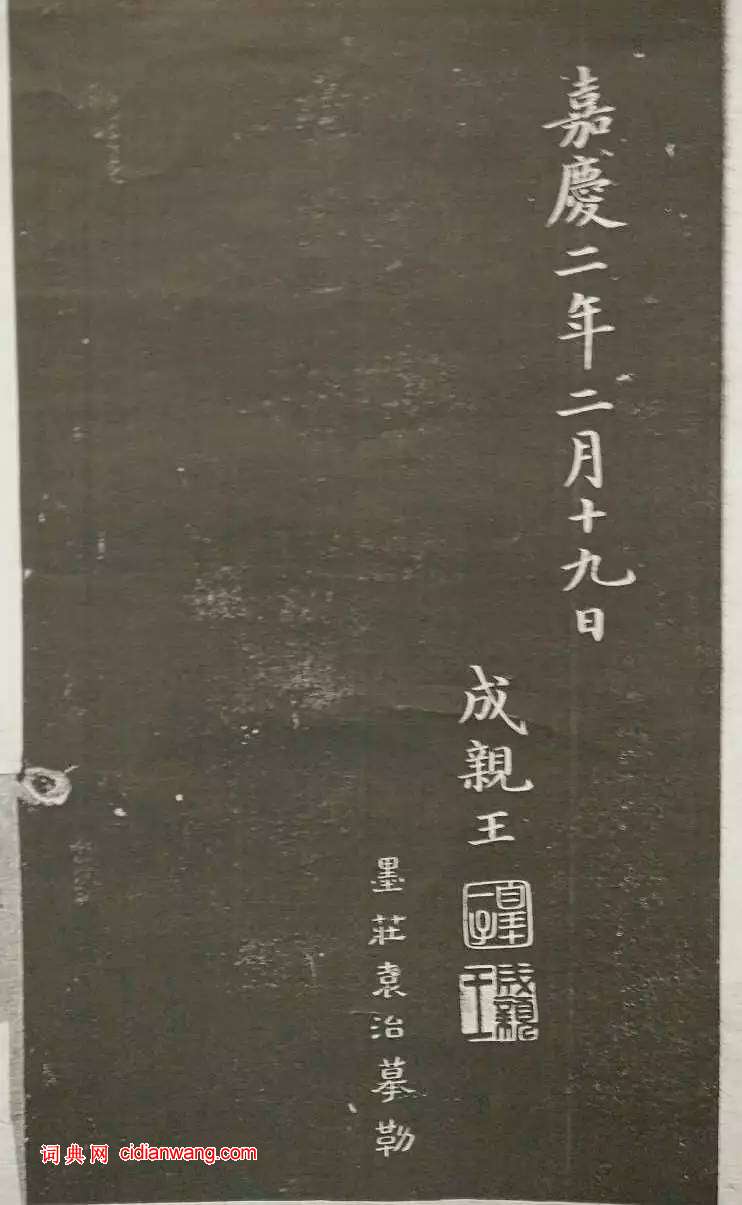 嘉慶二年二月十九日
成親王
成親王
墨莊袁治摹勒
词典网 cidianwang.com